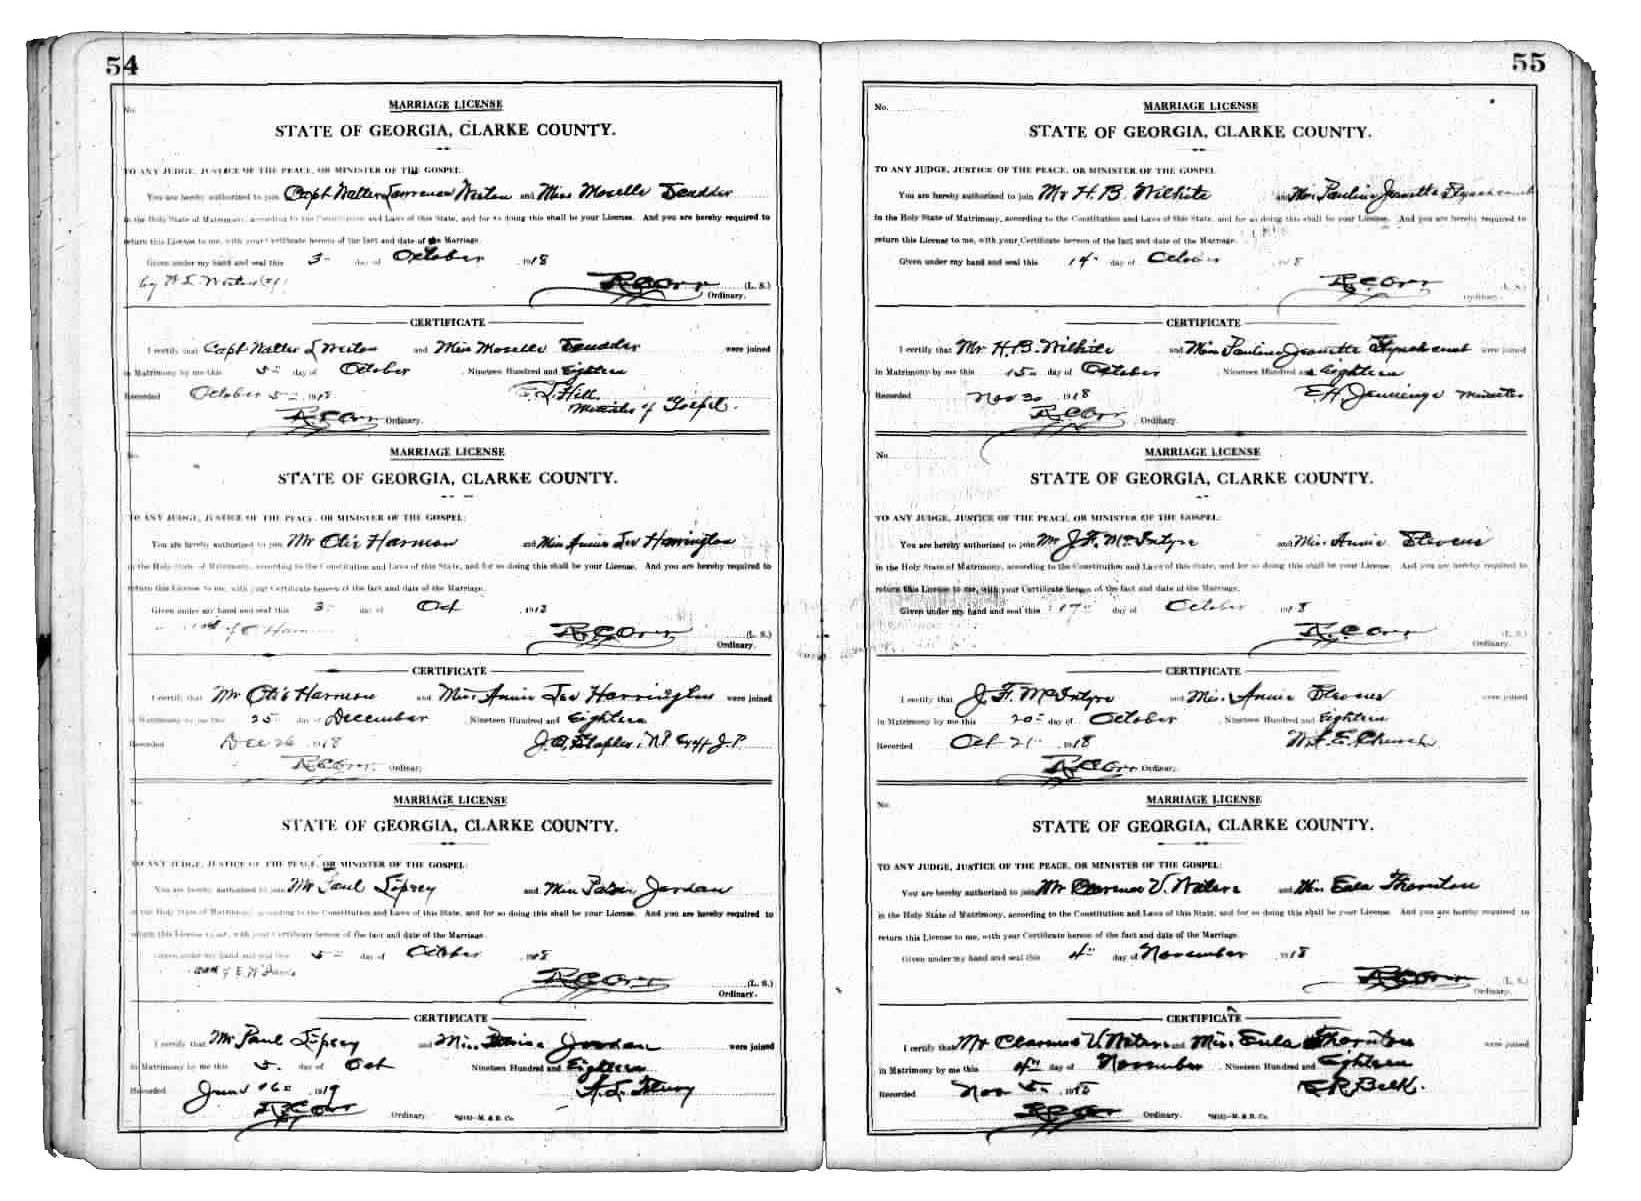 54
No.
MARRIAGE LICENSE
STATE OF GEORGIA, CLARKE COUNTY.
TO ANY JUDGE, JUSTICE OF THE PEACE, OR MINISTER OF THE GOSPEL.
You are hereby authorized to join Capt Walter Lawrence and Miss Moselle Scudder
in the Holy State of Matrimony, according to the Constitution and Laws of this State, and for so doing this shall be your License. And you are hereby required to
return this License to me, with your Certificate hereon of the fact and date of the Marriage.
Given under my hand and seal this 3 day of October 1918
by
R C Orr (L. S.)
Ordinary.
CERTIFICATE
I certify that Capt Walter L and Miss Moselle Scudder were joined
in Matrimony by me this 5 day of October, Nineteen Hundred and Eighteen
Recorded October 5 1918 Hill
Minister of Gospel.
R C Orr Ordinary.
No.
MARRIAGE LICENSE
STATE OF GEORGIA, CLARKE COUNTY.
TO ANY JUDGE, JUSTICE OF THE PEACE, OR MINISTER OF THE GOSPEL:
You are hereby authorized to join Mr Otis Harmon and Miss Annie Lee Harrington
in the Holy State of Matrimony, according to the Constitution and Laws of this State, and for so doing this shall be your License. And you are hereby required to
return this License to me, with your Certificate hereon of the fact and date of the Marriage.
Given under my hand and seal this 3 day of Oct 1918
R C Orr (L. S.)
Ordinary.
CERTIFICATE
I certify that Mr Otis Harmon and Miss Annie Lee Harrington were joined
in Matrimony by me this 25 day of December, Nineteen Hundred and Eighteen
Recorded Dec 26 1918 J. O. Staples, N.P. & Exoff J.P.
R C Orr Ordinary.
No.
MARRIAGE LICENSE
STATE OF GEORGIA, CLARKE COUNTY.
TO ANY JUDGE, JUSTICE OF THE PEACE, OR MINISTER OF THE GOSPEL:
You are hereby authorized to join Mr Paul and Miss Jordan
in the Holy State of Matrimony, according to the Constitution and Laws of this State, and for so doing this shall be your License. And you are hereby required to
return this License to me, with your Certificate hereon of the fact and date of the Marriage.
Given under my hand and seal this 5 day of October 1918
R C Orr (L. S.)
Ordinary.
CERTIFICATE
I certify that Mr Paul and Miss Jordan were joined
in Matrimony by me this 5. day of Oct Nineteen Hundred and Eighteen
Recorded June 16 1919
R C Orr Ordinary.
55
No.
MARRIAGE LICENSE
STATE OF GEORGIA, CLARKE COUNTY.
TO ANY JUDGE, JUSTICE OF THE PEACE, OR MINISTER OF THE GOSPEL
You are hereby authorized to join Mr H. B. Wilhite and Miss Pauline Jeanette
in the Holy State of Matrimony, according to the Constitution and Laws of this State, and for so doing this shall be your License. And you are hereby required to
return this License to me, with your Certificate hereon of the fact and date of the Marriage.
Given under my hand and seal this 14 day of October 1918
R C Orr (L. S.)
Ordinary.
CERTIFICATE
I certify that Mr H. B. Wilhite and Miss Pauline Jeanette were joined
in Matrimony by me this 15 day of October, Nineteen Hundred and Eighteen
Recorded Nov 30 1918 E H Jennings Minister
R C Orr Ordinary.
No.
MARRIAGE LICENSE
STATE OF GEORGIA, CLARKE COUNTY.
TO ANY JUDGE, JUSTICE OF THE PEACE, OR MINISTER OF THE GOSPEL:
You are hereby authorized to join Mr J. F. McIntyre and Miss Annie Stevens
in the Holy State of Matrimony, according to the Constitution and Laws of this State, and for so doing this shall be your License. And you are hereby required to
return this License to me, with your Certificate hereon of the fact and date of the Marriage.
Given under my hand and seal this 17 day of October 1918
R C Orr (L. S.)
Ordinary.
CERTIFICATE
I certify that J. F. McIntyre and Miss Annie Stevens were joined
in Matrimony by me this 20 day of October, Nineteen Hundred and Eighteen
Recorded Oct 21 1918 E. Church
R C Orr Ordinary.
No.
MARRIAGE LICENSE
STATE OF GEORGIA, CLARKE COUNTY.
TO ANY JUDGE, JUSTICE OF THE PEACE, OR MINISTER OF THE GOSPEL:
You are hereby authorized to join Mr Clarence V. Waters and Miss Eula Thornton
in the Holy State of Matrimony, according to the Constitution and Laws of this State, and for so doing this shall be your License. And you are hereby required to
return this License to me, with your Certificate hereon of the fact and date of the Marriage.
Given under my hand and seal this 4 day of November 1918
R C Orr (L. S.)
Ordinary.
CERTIFICATE
I certify that Mr Clarence V Waters and Miss Eula Thornton were joined
in Matrimony by me this 4 day of November, Nineteen Hundred and Eighteen
Recorded Nov 5 1918 Belk.
R C Orr Ordinary.